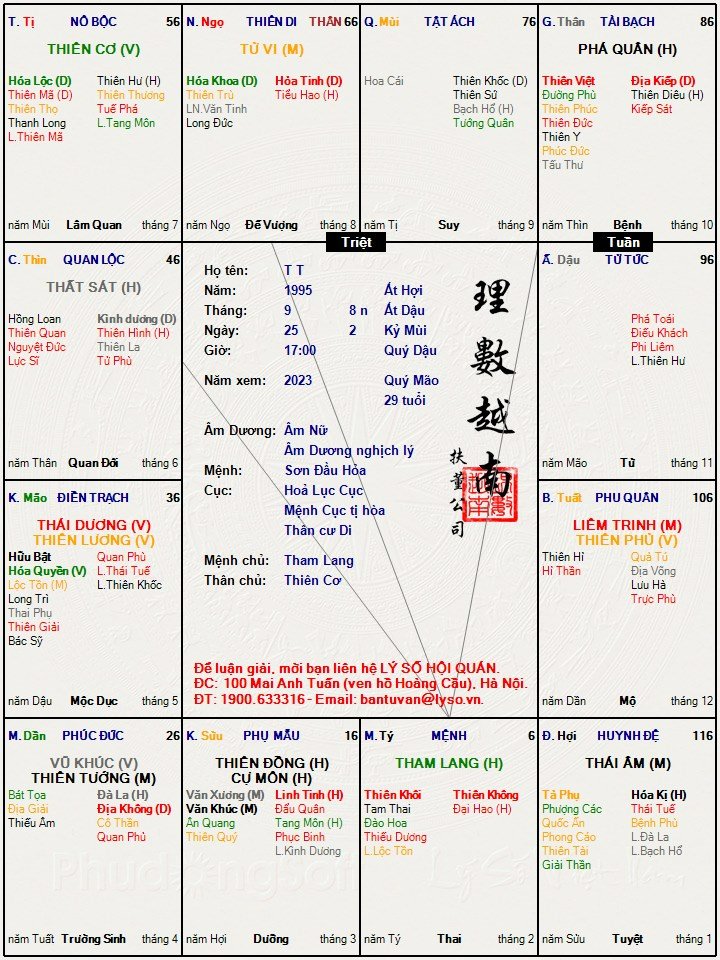 T. Tị NÔ BỘC 56
THIÊN CƠ (V)
Hóa Lộc (D) Thiên Hư (H)
Thiên Mã (D) Thiên Thương
Thiên Thọ Tuế Phá
Thanh Long L.Tang Môn
L.Thiên Mã
năm Mùi Lâm Quan tháng 7
N. Ngọ THIÊN DI THÂN 66
TỬ VI (M)
Hóa Khoa (D) Hỏa Tinh (D)
Thiên Trù Tiểu Hao (H)
LN.Văn Tinh
Long Đức
năm Ngọ Đế Vượng tháng 8
Q. Mùi TẬT ÁCH 76
Hoa Cái Thiên Khốc (D)
Thiên Sứ
Bạch Hổ (H)
Tướng Quân
năm Tị Suy tháng 9
G. Thân TÀI BẠCH 86
PHÁ QUÂN (H)
Thiên Việt Địa Kiếp (D)
Đường Phù Thiên Diêu (H)
Thiên Phúc Kiếp Sát
Thiên Đức
Thiên Y
Phúc Đức
Tấu Thư
năm Thìn Bệnh tháng 10
C. Thìn QUAN LỘC 46
THẤT SÁT (H)
Hồng Loan Kình dương (D)
Thiên Quan Thiên Hình (H)
Nguyệt Đức Thiên La
Lực Sĩ Tử Phù
năm Thân Quan Đới tháng 6
Triệt
Tuần
Họ tên: T T
Năm: 1995 Ất Hợi
Tháng: 9 8 n Ất Dậu
Ngày: 25 2 Kỷ Mùi
Giờ: 17:00 Quý Dậu
Năm xem: 2023 Quý Mão
29 tuổi
Âm Dương: Âm Nữ
Âm Dương nghịch lý
Mệnh: Sơn Đầu Hỏa
Cục: Hoả Lục Cục
Mệnh Cục tị hòa
Thân cư Di
Mệnh chủ: Tham Lang
Thân chủ: Thiên Cơ
理數越南
扶董公司
Để luận giải, mời bạn liên hệ LÝ SỐ HỘI QUÁN.
ĐC: 100 Mai Anh Tuấn (ven hồ Hoàng Cầu), Hà Nội.
ĐT: 1900.633316 - Email: bantuvan@lyso.vn.
Ấ. Dậu TỬ TỨC 96
Phá Toái
Điếu Khách
Phi Liêm
L.Thiên Hư
năm Mão Tử tháng 11
K. Mão ĐIỀN TRẠCH 36
THÁI DƯƠNG (V)
THIÊN LƯƠNG (V)
Hữu Bật Quan Phù
Hóa Quyền (V) L.Thái Tuế
Lộc Tồn (M) L.Thiên Khốc
Long Trì
Thai Phụ
Thiên Giải
Bác Sỹ
năm Dậu Mộc Dục tháng 5
B. Tuất PHU QUÂN 106
LIÊM TRINH (M)
THIÊN PHỦ (V)
Thiên Hỉ Quả Tú
Hỉ Thần Địa Võng
Lưu Hà
Trực Phù
năm Dần Mộ tháng 12
M. Dần PHÚC ĐỨC 26
VŨ KHÚC (V)
THIÊN TƯỚNG (M)
Bát Tọa Đà La (H)
Địa Giải Địa Không (D)
Thiếu Âm Cô Thần
Quan Phủ
năm Tuất Trường Sinh tháng 4
K. Sửu PHỤ MẪU 16
THIÊN ĐỒNG (H)
CỰ MÔN (H)
Văn Xương (M) Linh Tinh (H)
Văn Khúc (M) Đẩu Quân
Ân Quang Tang Môn (H)
Thiên Quý Phục Binh
L.Kình Dương
năm Hợi Dưỡng tháng 3
M. Tý MỆNH 6
THAM LANG (H)
Thiên Khôi Thiên Không
Tam Thai Đại Hao (H)
Đào Hoa
Thiếu Dương
L.Lộc Tồn
năm Tý Thai tháng 2
Đ. Hợi HUYNH ĐỆ 116
THÁI ÂM (M)
Tả Phụ Hóa Kị (H)
Phượng Các Thái Tuế
Quốc Ấn Bệnh Phù
Phong Cáo L.Đà La
Thiên Tài L.Bạch Hổ
Giải Thần
năm Sửu Tuyệt tháng 1